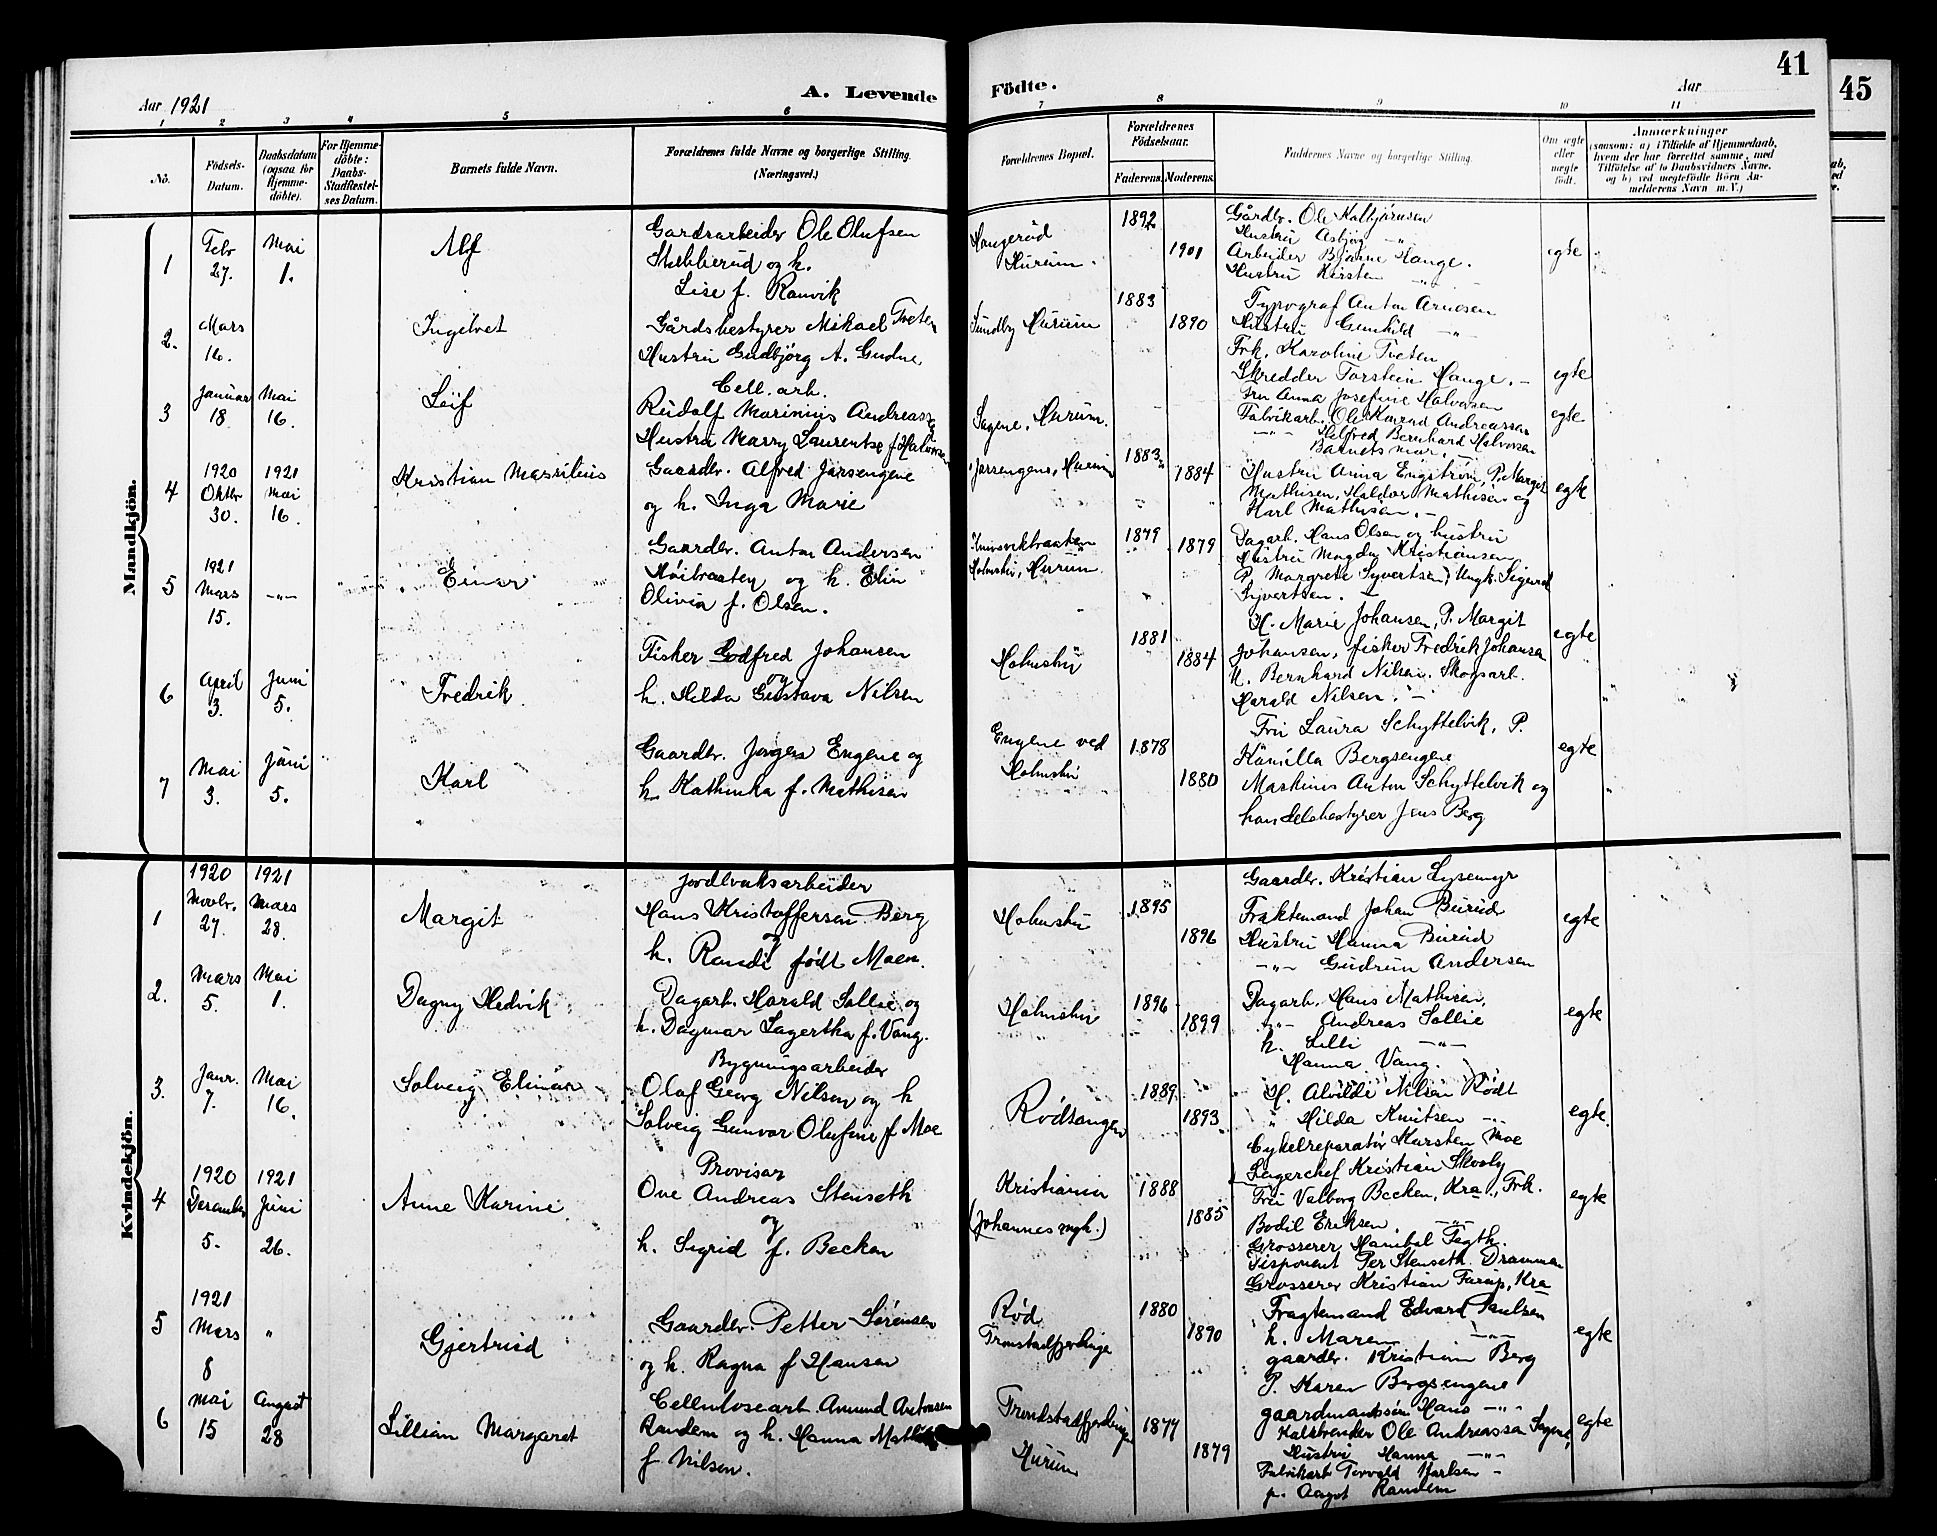 41
45
Aar 1921
A. Levende
Födte.
Aar
1 2 3 4 5 6 7 8 9 10 11
No.
Födsels-
Datum.
Daabsdatum
(ogsaa for
Hjemme-
döbte).
For Hjemme-
döbte:
Daabs-
Stadfæstel-
ses Datum.
Barnets fulde Navn.
Forældrenes fulde Navne og borgerlige Stilling.
(Næringsvei.)
Forældrenes Bopæl.
Forældrenes
Födselsaar.
Faderens. Moderens.
Faddernes Navne og borgerlige Stilling.
Om ægte
eller
uægte
født.
Anmærkninger
(saasom: a) i Tilfælde af Hjemmedaab,
hvem der har forrettet samme, med
Tilföielse af to Daabsvidners Navne,
og b) ved uægtefödte Börn An-
melderens Navn m. V.)
Mandkjön.
1
Febr
27.
Mai
1.
Alf
Gardsarbeider Ole Olufsen
Stebberud og h.
Lise f. Ranvik
Haugerud
Hurum.
1892
1901
Gårdbr. Ole Kalbjørnsen
Hustru Asbjøg -"-
Arbeider Bjarne Hauge.
Hustru Kirsten -"-
egte
2.
Mars
16.
Ingelvet
Gårdsbestyrer Mikael Tveten
Hustru Gudbjörg A. Gudne
Sundby Hurum
1883
1890
Typograf Anton Arnesen
Hustru Gunhild -"-
Frk. Karoline Tveten
Skredder Torstein Hauge. -
egte
3
Januar
18
Mai
16.
Leif
Cell. arb.
Rudolf Marinius Andreassen
Hustru Marry Laurentse f. Halvorsen
Sagene, Hurum.
Fru Anna Josefine Halvorsen
Fabrikarb. Ole Konrad Andreassen
-"- Helfred Bernhard Halvorsen
Barnets mor. -
egte
4
1920
Oktbr
30.
1921
Mai
16.
Kristian Marsilius
Gaardbr. Alfred Jarsengene
og h. Inga Marie
Jarsengene, Hurum
1883
1884
Hustru Anna Engstrøm, P. Margit
Mathisen, Haldor Mathisen og
Karl Mathisen. -
egte
5
1921
Mars
15.
-"-
Einar
Gaardbr. Anton Andersen
Höibraaten og h. Elin
Olivia f. Olsen.
Holmsbu, Hurum
1879
1879
Dagarb. Hans Olsen og hustru
Hustru Magda Kristiansen
P. Margrete Syvertsen, Ungk. Sigurd
Syvertsen. -
egte
6
April
3.
Juni
5.
Fredrik
Fisker Godfred Johansen
og
h. Hilda Gustava Nilsen
Holmsbu
1881
1884
H. Marie Johansen, P. Margit
Johansen, fisker Fredrik Johansen
U. Bernhard Nilsen. Skogsarb.
Harald Nilsen. -
7
Mai
3.
Juni
5.
Karl
Gaardbr. Jørgen Engene og
h. Kathinka f. Mathisen
Engene ved
Holmsbu
1878
1880
Fru Laura Schyttelvik, P.
Kamilla Bergsengene
Maskinis Anton Schyttelvik og
handelsbestyrer Jens Berg
egte
Kvindekjön.
1
1920
Novbr.
27.
1921
Mars
28.
Margit
Jordbruksarbeider
Hans Kristoffersen Berg
og
h. Randi født Moen.
Holmsbu
1895
1896
Gaardbr. Kristian Lysemyr
Fraktemand Johan Burud
Hustru Hanna Burud
-"- Gudrun Andersen
egte
2.
Mars
5.
Mai
1.
Dagny Hedvik
Dagarb. Harald Sollie og
h. Dagmar Lagertha f. Vang.
Holmsbu
1896
1899
Dagarb. Hans Mathisen,
-"- Andreas Sollie
h. Lilli -"-
Hanna Vang.
egte
3.
Janr.
7.
Mai
16.
Solveig Elinor
Bygningsarbeider
Olaf Georg Nilsen og h
Solveig Gunvor Olufine f. Moe
Rødtangen
1889
1893
H. Alvilde Nilsen Rødt
" Hilda Knutsen -"-
Cykelreparatør Karsten Moe
egte.
4
1920
December
5.
1921
Juni
26.
Anne Karine
Provisor
Ove Andreas Stenseth
og
h. Sigrid f. Becken
Kristiania
(Johannes mgh.)
1888
1885
Lagerchef Kristian Skovly
Fru Valborg Becken, Kra., Frk.
Bodil Eriksen, -"-
Grosserer Hanibal Fegth.
Disponent Per Stenseth. Drammen
Grosserer Kristian Farup, Kra
egte
5
1921
Mars
8
"
Gjertrud
Gaardbr. Petter Sørensen
og h. Ragna f Hansen
Rød
Tronstadfjerdinge
1880
1890
Fragtemand Edvard Paulsen
h. Maren -"-
gaardbr. Kristian Berg
P. Karen Bergsengene
gaardmandssøn Hans -"-
egte
6
Mai
15
August
28
Lillian Margaret
Cellulosearb. Amund Antonsen
Randem og h. Hanna Mathilde
f Nilsen.
Tronstadfjerdingen
Hurum
1877
1879
Kalkbrender Ole Andreassen Sagene,
Hustru Hanna -"-
Fabrikarb Torvald Karlsen -
p. Aagot Randem
egte